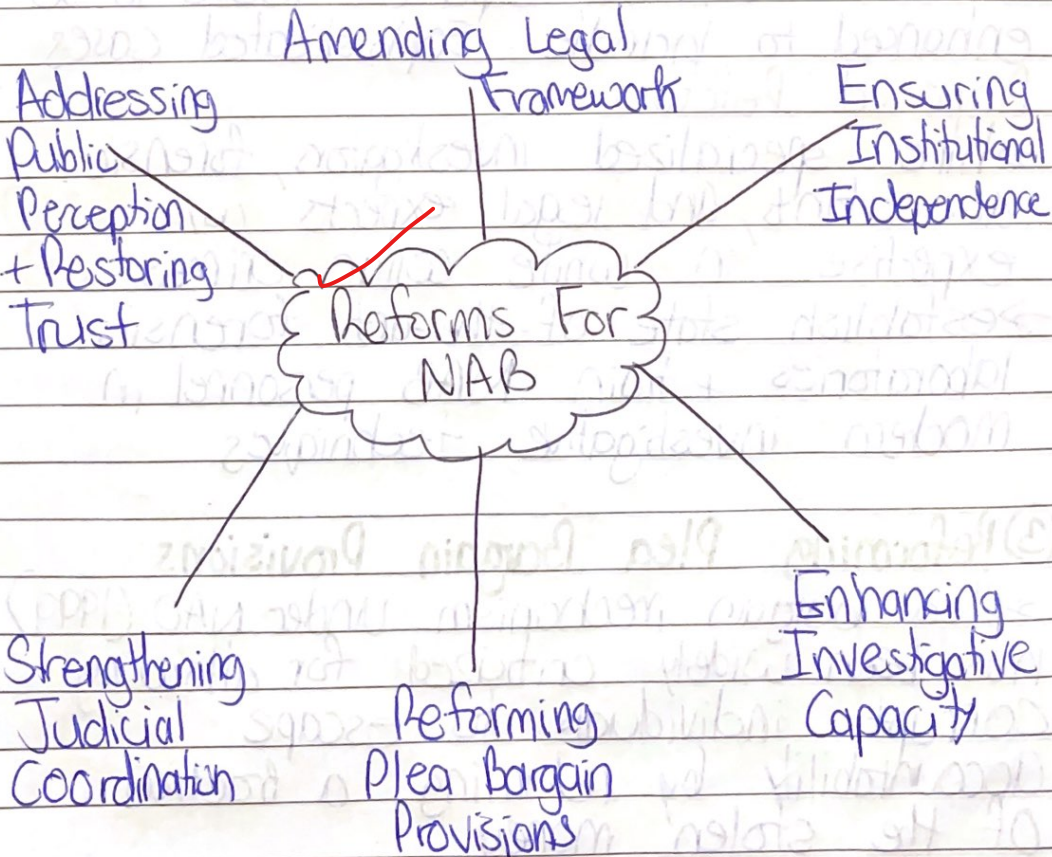 Amending Legal
Framework
Addressing
Public
Perception
+ Restoring
Trust
Ensuring
Institutional
Independence
Reforms For
NAB
Strengthening
Judicial
Coordination
Reforming
Plea Bargain
Provisions
Enhancing
Investigative
Capacity